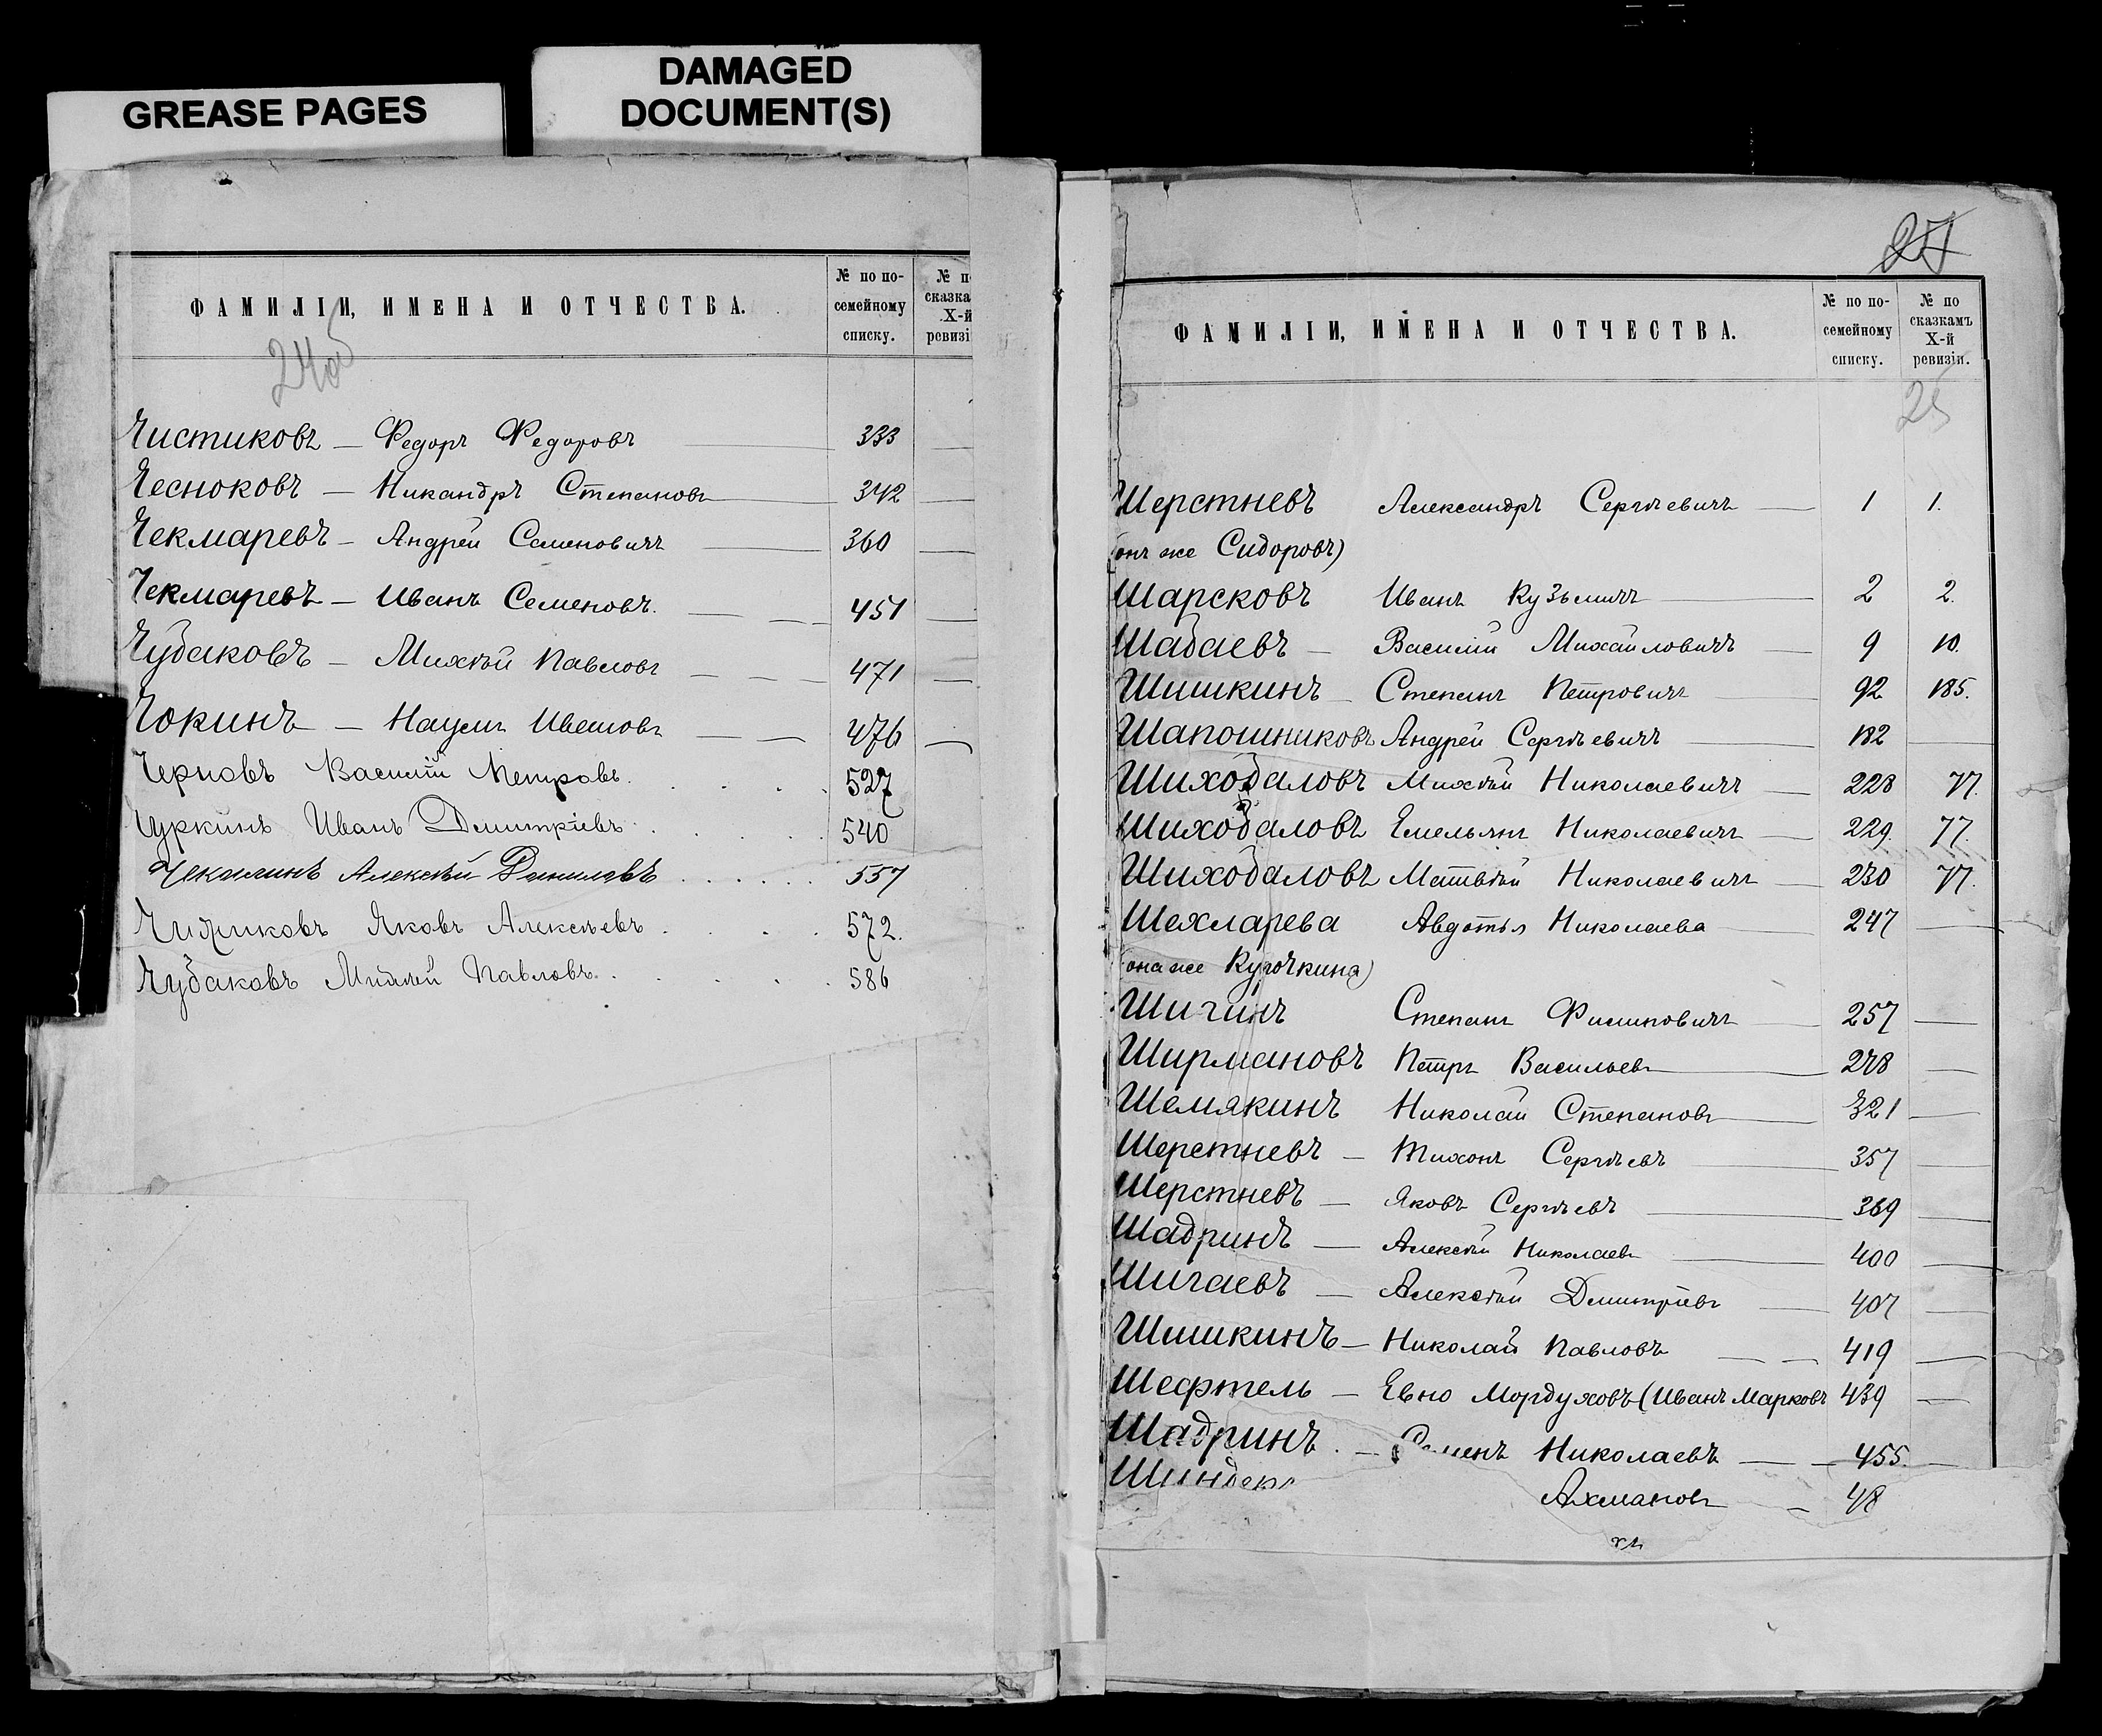 GREASE PAGES
DAMAGED
DOCUMENT(S)
ФАМИЛІИ, ИМЕНА И ОТЧЕСТВА.
№ по по-
семейному
списку.
№ п
сказка
X-й
ревизі
24об
Чистиковъ — Федоръ Федоровъ 333
Чесноковъ — Никандръ Степановъ 342
Чекмаревъ — Андрей Семеновичъ 360
Чекмаревъ — Иванъ Семеновъ. 451
Чудаковъ — Михѣй Павловъ 471
Чокинъ — Наумъ Ивановъ 476
Черновъ Василій Петровъ. 527
Чуркинъ Иванъ Дмитріевъ 540
Чекалинъ Алексѣй Даниловъ 557
Чижиковъ Яковъ Алексѣевъ 572.
Чудаковъ Михѣй Павловъ 586
24
ФАМИЛІИ, ИМЕНА И ОТЧЕСТВА.
№ по по-
семейному
списку.
№ по
сказкамъ
X-й
ревизіи.
25
Шерстневъ Александръ Сергѣевичъ — 1 1.
(онъ же Сидоровъ)
Шарсковъ Иванъ Кузьмичъ — 2 2.
Шабаевъ — Василій Михайловичъ — 9 10.
Шишкинъ — Степанъ Петровичъ — 92 185.
Шапошниковъ Андрей Сергѣевичъ — 182 —
Шиходаловъ Михѣй Николаевичъ — 228 77.
Шиходаловъ Емельянъ Николаевичъ — 229. 77.
Шиходаловъ Матвѣй Николаевичъ — 230 77.
Шехларева Авдотья Николаева — 247 —
(она же Курочкина)
Шигинъ Степанъ Филиповичъ — 257 —
Ширмановъ Петръ Васильевъ — 278 —
Шемякинъ Николай Степановъ — 321 —
Шерстневъ — Тихонъ Сергѣевъ — 357 —
Шерстневъ — Яковъ Сергѣевъ — 369 —
Шадринъ — Алексѣй Николаевъ — 400 —
Шигаевъ — Алексѣй Дмитріевъ — 407 —
Шишкинъ — Николай Павловъ — 419 —
Шефтель — Евно Мордуховъ (Иванъ Марковъ 439 —
Шадринъ. — Семенъ Николаевъ — 455. —
Шиндер Ахмановъ — 48